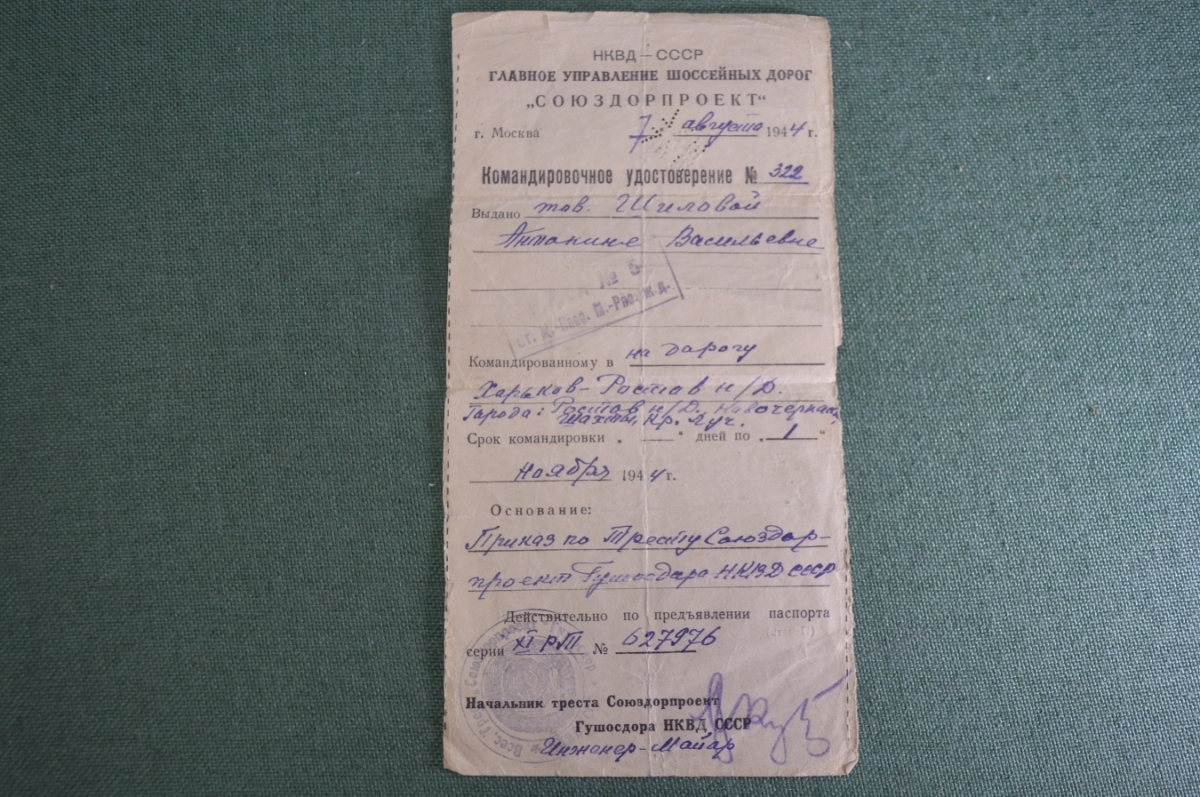 НКВД — СССР
ГЛАВНОЕ УПРАВЛЕНИЕ ШОССЕЙНЫХ ДОРОГ
„СОЮЗДОРПРОЕКТ“
г. Москва 7 августа 1944 г.
Командировочное удостоверение № 322
Выдано тов. Шиловой
Антонине Васильевне
№ 5
Командированному в на дорогу
Харьков - Ростов н/Д.
Города: Ростов н/Д. Новочеркасск,
Шахты, Кр. Луч.
Срок командировки „ — “ дней по „ 1 “
ноября 1944 г.
Основание:
Приказ по Тресту Союздор-
проект Гушосдора НКВД СССР
Действительно по предъявлении паспорта
серии XI РТ № 627976
Начальник треста Союздорпроект
Гушосдора НКВД СССР
Инженер-Майор